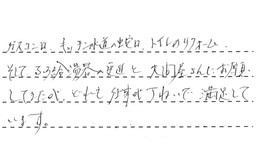 ガスコンロ、キッチン水道の蛇口、トイレのリフォーム、
そして、給湯器の交換と 大岡産さんにお願い
してきたが、どれも 仕事が丁ねいで 満足して
います。